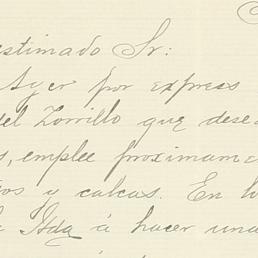 estimado Sr:
Ayer por express
del Zorrillo que dese
s, emplee proximam
os y calcas. En
Hda á hacer una